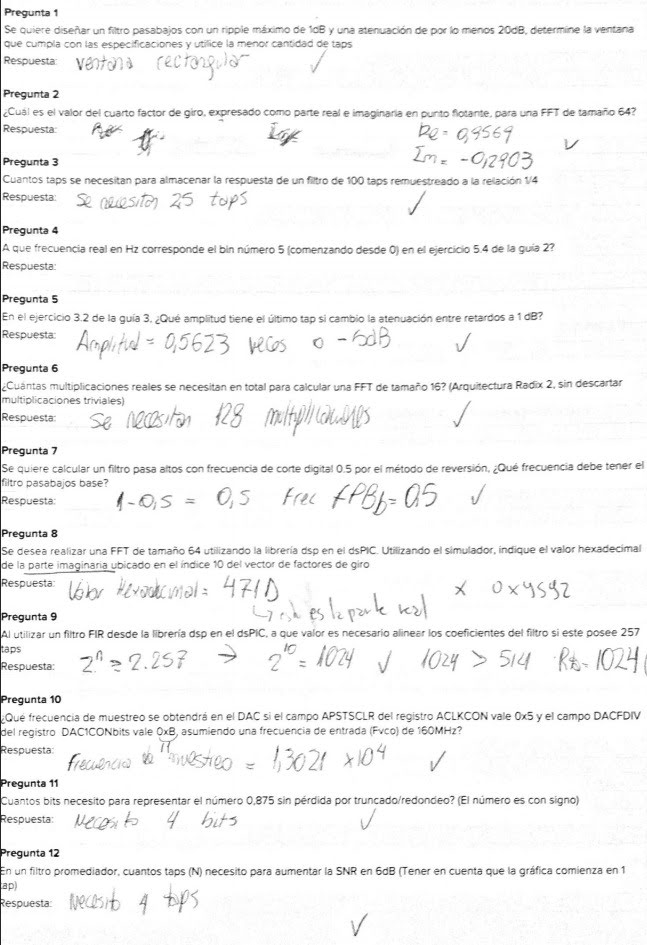 Pregunta 1
Se quiere diseñar un filtro pasabajos con un ripple máximo de 1dB y una atenuación de por lo menos 20dB, determine la ventana
que cumpla con las especificaciones y utilice la menor cantidad de taps
Respuesta: ventana rectangular ✓
Pregunta 2
¿Cuál es el valor del cuarto factor de giro, expresado como parte real e imaginaria en punto flotante, para una FFT de tamaño 64?
Respuesta: Re = 0,9569 ✓
Im = -0,2903
Pregunta 3
Cuantos taps se necesitan para almacenar la respuesta de un filtro de 100 taps remuestreado a la relación 1/4
Respuesta: Se necesitan 25 taps ✓
Pregunta 4
A que frecuencia real en Hz corresponde el bin número 5 (comenzando desde 0) en el ejercicio 5.4 de la guía 2?
Respuesta:
Pregunta 5
En el ejercicio 3.2 de la guía 3, ¿Qué amplitud tiene el último tap si cambio la atenuación entre retardos a 1 dB?
Respuesta: Amplitud = 0,5623 veces o -5dB ✓
Pregunta 6
¿Cuántas multiplicaciones reales se necesitan en total para calcular una FFT de tamaño 16? (Arquitectura Radix 2, sin descartar
multiplicaciones triviales)
Respuesta: Se necesitan 128 multiplicaciones ✓
Pregunta 7
Se quiere calcular un filtro pasa altos con frecuencia de corte digital 0.5 por el método de reversión, ¿Qué frecuencia debe tener el
filtro pasabajos base?
Respuesta: 1-0,5 = 0,5 Frec FPBb = 0,5 ✓
Pregunta 8
Se desea realizar una FFT de tamaño 64 utilizando la librería dsp en el dsPIC. Utilizando el simulador, indique el valor hexadecimal
de la parte imaginaria ubicado en el índice 10 del vector de factores de giro
Respuesta: Valor Hexadecimal = 471D x 0x9592
↳ esa es la parte real
Pregunta 9
Al utilizar un filtro FIR desde la librería dsp en el dsPIC, a que valor es necesario alinear los coeficientes del filtro si este posee 257
taps
Respuesta: 2ⁿ ≥ 2.257 → 2¹⁰ = 1024 ✓ 1024 > 514 Rta = 1024
Pregunta 10
¿Qué frecuencia de muestreo se obtendrá en el DAC si el campo APSTSCLR del registro ACLKCON vale 0x5 y el campo DACFDIV
del registro DAC1CONbits vale 0xB, asumiendo una frecuencia de entrada (Fvco) de 160MHz?
11
Respuesta: Frecuencia de muestreo = 1,3021 x10⁴ ✓
Pregunta 11
Cuantos bits necesito para representar el número 0,875 sin pérdida por truncado/redondeo? (El número es con signo)
Respuesta: Necesito 4 bits ✓
Pregunta 12
En un filtro promediador, cuantos taps (N) necesito para aumentar la SNR en 6dB (Tener en cuenta que la gráfica comienza en 1
tap)
Respuesta: Necesito 4 taps ✓